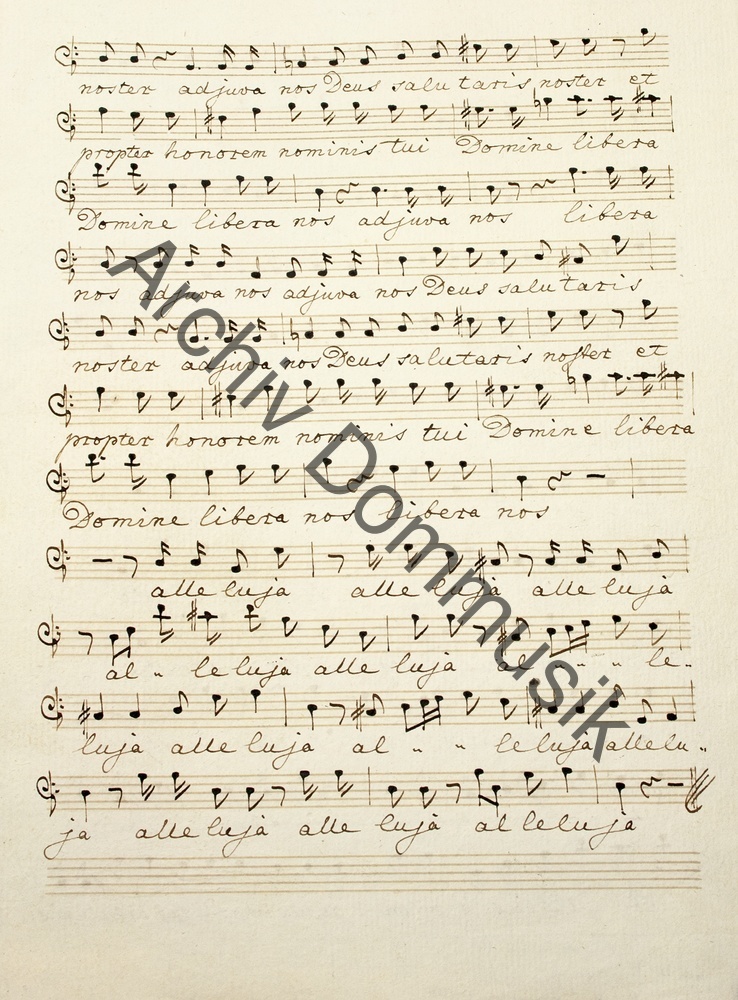 noster adjuva nos Deus salutaris noster et
propter honorem nominis tui Domine libera
Domine libera nos adjuva nos libera
nos adjuva nos adjuva nos Deus salutaris
noster adjuva nos Deus salutaris noster et
propter honorem nominis tui Domine libera
Domine libera nos libera nos
alleluja alleluja alleluja
al " leluja alleluja al " " le"
luja alleluja al " " leluja allelu"
ja alleluja alleluja alleluja
Archiv Dommusik